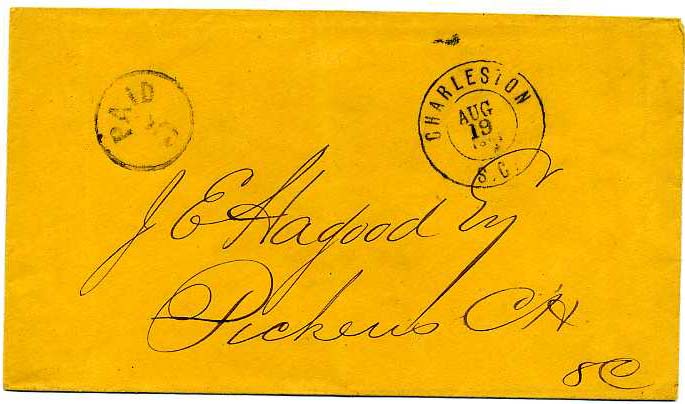 PAID
5C
CHARLESTON
AUG
19
S.C.
J E Hagood Esq
Pickens CH
SC